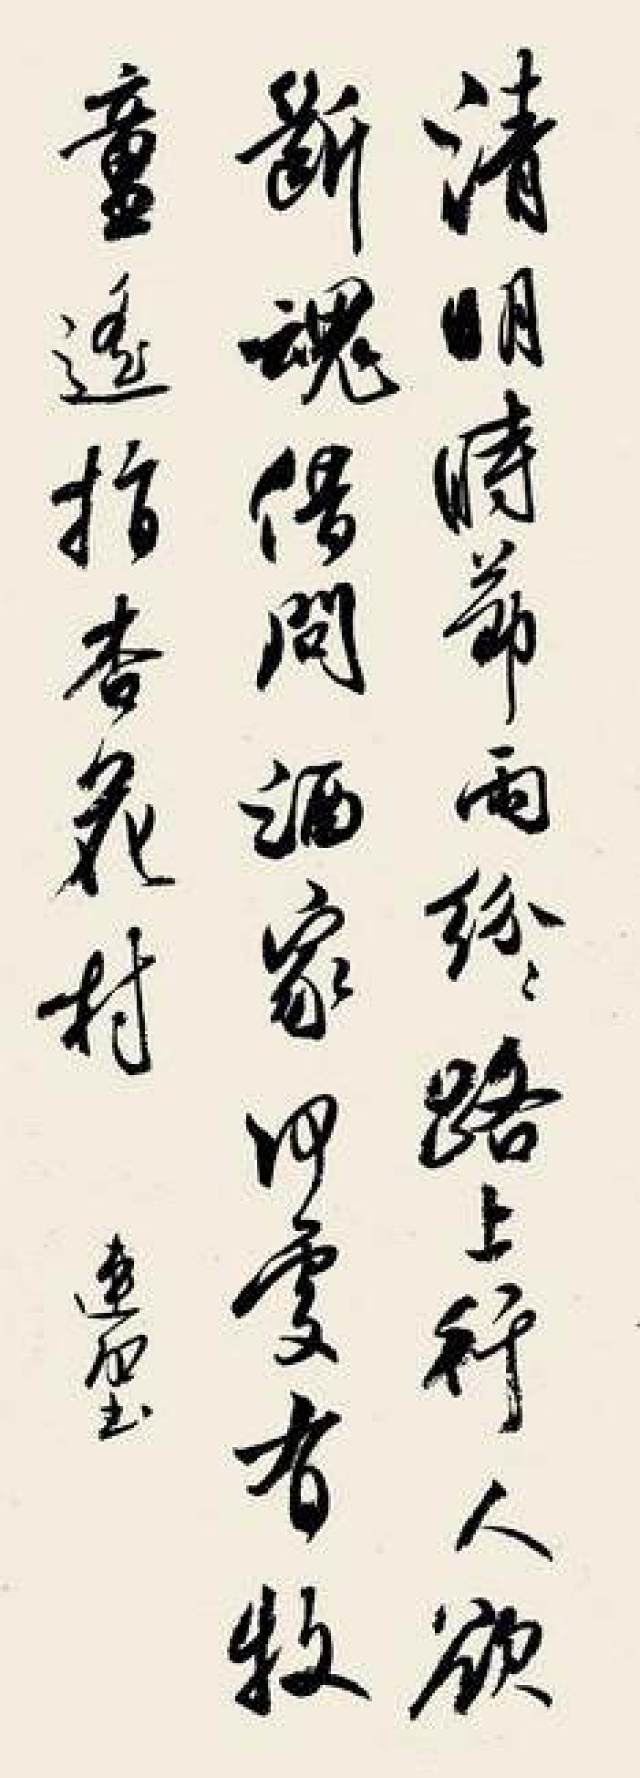 清明時節雨紛々路上行人欲
斷魂借問酒家何處有牧
童遙指杏花村